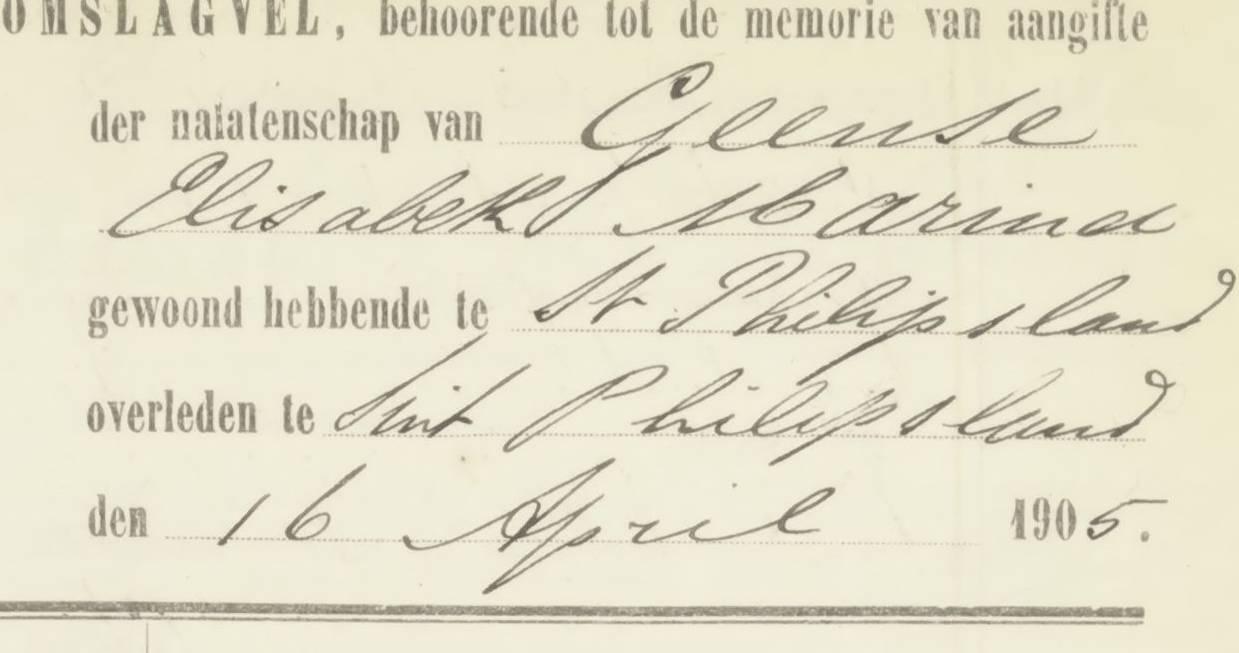 OMSLAGVEL, behoorende tot de memorie van aangifte
der nalatenschap van Geense
Elisabeth Marina
gewoond hebbende te St Philipsland
overleden te Sint Philipsland
den 16 April 1905.